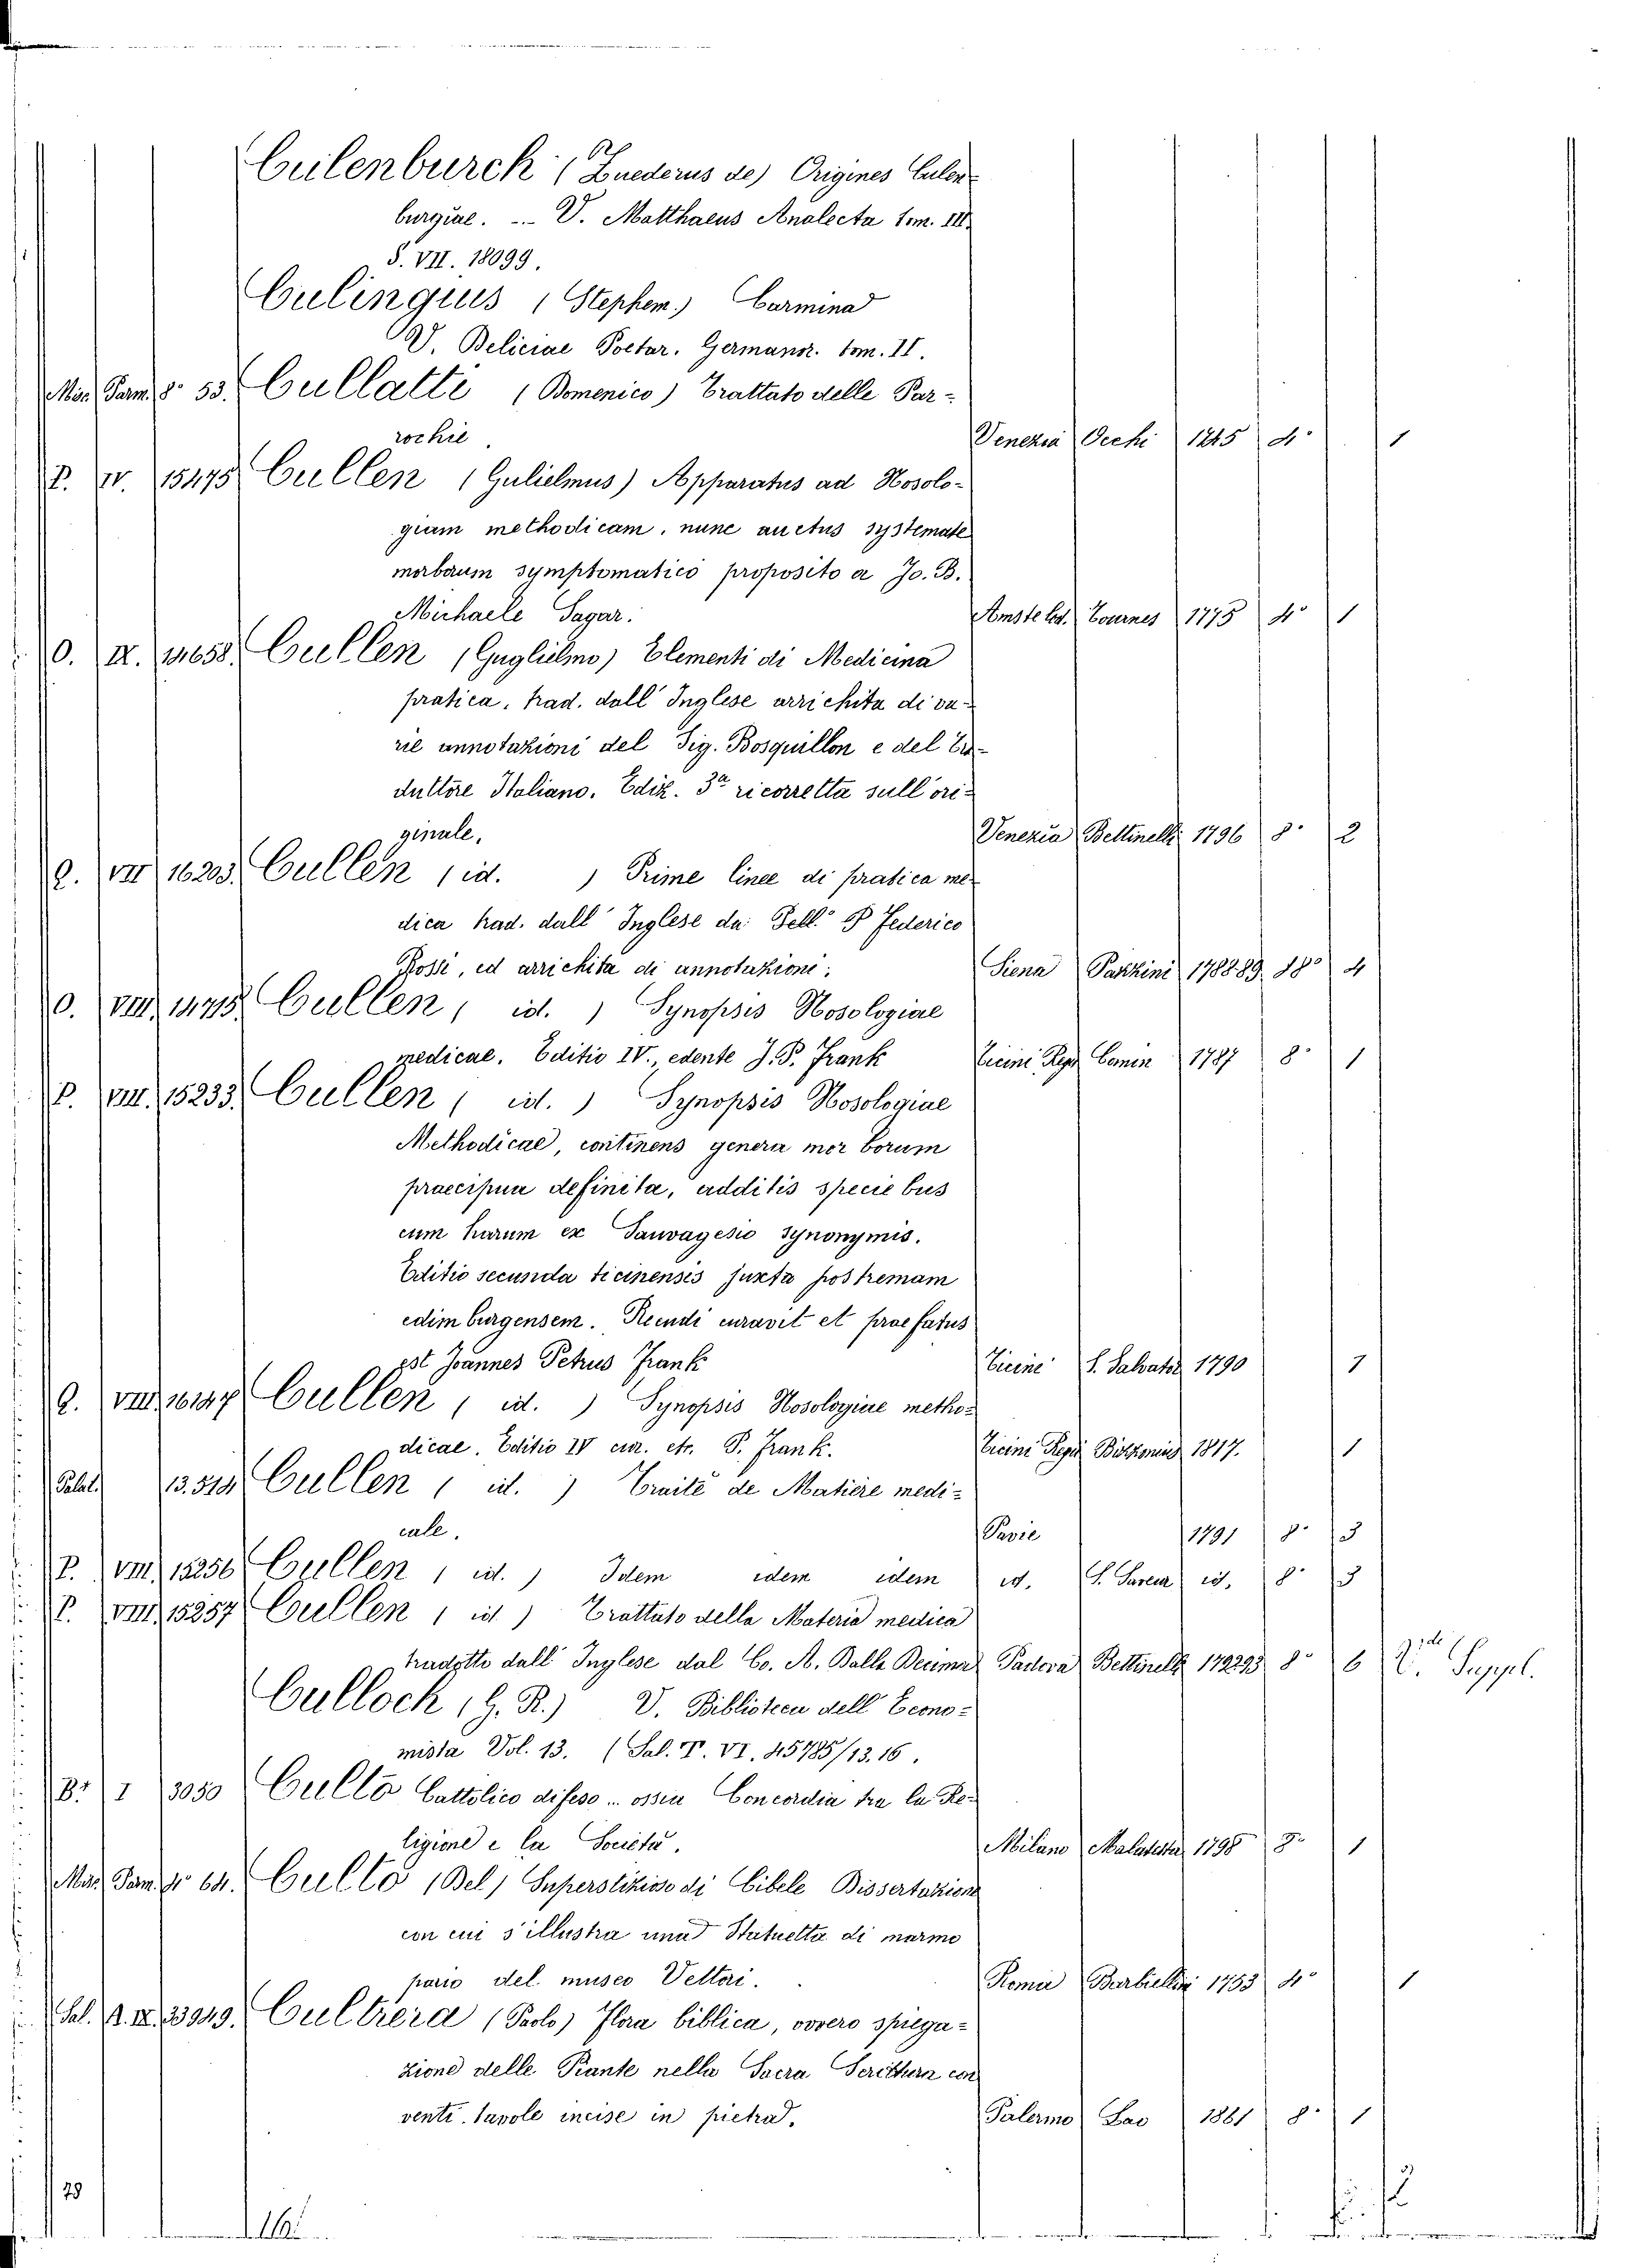 Culenburck (Zuederus de) Origines Culen-
burgiae. -- V. Matthaeus Analecta tom. III.
S. VII. 18099.
Culingius (Stephem.) Carmina
V. Deliciae Poetar. Germanor. tom. II.
Misc. Parm. 8º 53. Cullatti (Domenico) Trattato delle Par-
rochie Venezia Occhi 1745 4º 1
P. IV. 15475 Cullen (Gulielmus) Apparatus ad Nosolo-
giam methodicam, nunc auctus systemate
morborum symptomatico proposito a Jo. B.
Michaele Sagar. Amstelod. Tournes 1775 4º 1
O. IX. 14658. Cullen (Guglielmo) Elementi di Medicina
pratica, trad. dall' Inglese arrichita di va-
rie annotazioni del Sig. Bosquillon e del Tra-
duttore Italiano. Ediz. 3ª ricorretta sull' ori-
ginale. Venezia Bettinelli 1796 8º 2
Q. VII 16203. Cullen (id. ) Prime linee di pratica me-
dica trad. dall' Inglese da: Dell. D. Federico
Rossi, ed arrichita di annotazioni. Siena Pazzini 178889. 8º 4
O. VIII. 14715 Cullen ( id. ) Synopsis Nosologiae
medicae. Editio IV., edente J. P. Frank Ticini Regii Comin 1787 8º 1
P. VIII. 15233. Cullen ( id. ) Synopsis Nosologiae
Methodicae, continens genera morborum
praecipua definita, additis speciebus
cum harum ex Sauvagesio synonymis.
Editio secunda ticinensis juxta postremam
edimburgensem. Recudi curavit et praefatus
est Joannes Petrus Frank Ticini S. Salvator 1790 1
Q. VIII. 16147 Cullen ( id. ) Synopsis Nosologiae metho-
dicae. Editio IV cur. etc. P. Frank. Ticini Regii Bizzonius 1817. 1
Palat. 13.514 Cullen ( id. ) Traité de Matière medi-
cale. Pavie 1791 8º 3
P. VIII. 15256 Cullen ( id. ) Idem idem idem id. id. 8º 3
P. VIII. 15257 Cullen ( id ) Trattato della Materia medica
tradotto dall' Inglese dal Co. A. Dalla Decima Padova Bettinelli 179293 8º 6 Vide Suppl.
Culloch (G. R.) V. Biblioteca dell' Econo-
mista Vol. 13. (Sal. T. VI. 45785/13.16.
Br. I 3050 Culto Cattolico difeso .. ossia Concordia tra la Re-
ligione e la Società. Milano Malatesta 1798 8º 1
Misc. Parm. 4º 64. Culto (Del) Superstizioso di Cibele Dissertazione
con cui s'illustra una Statuetta di marmo
pario del museo Vettori. Roma Barbiellini 1753 4º 1
Sal. R. IX. 33949. Cultrera (Paolo) Flora biblica, ovvero spiega-
zione delle Piante nella Sacra Scrittura con
venti tavole incise in pietra. Palermo Lao 1861 8º 1